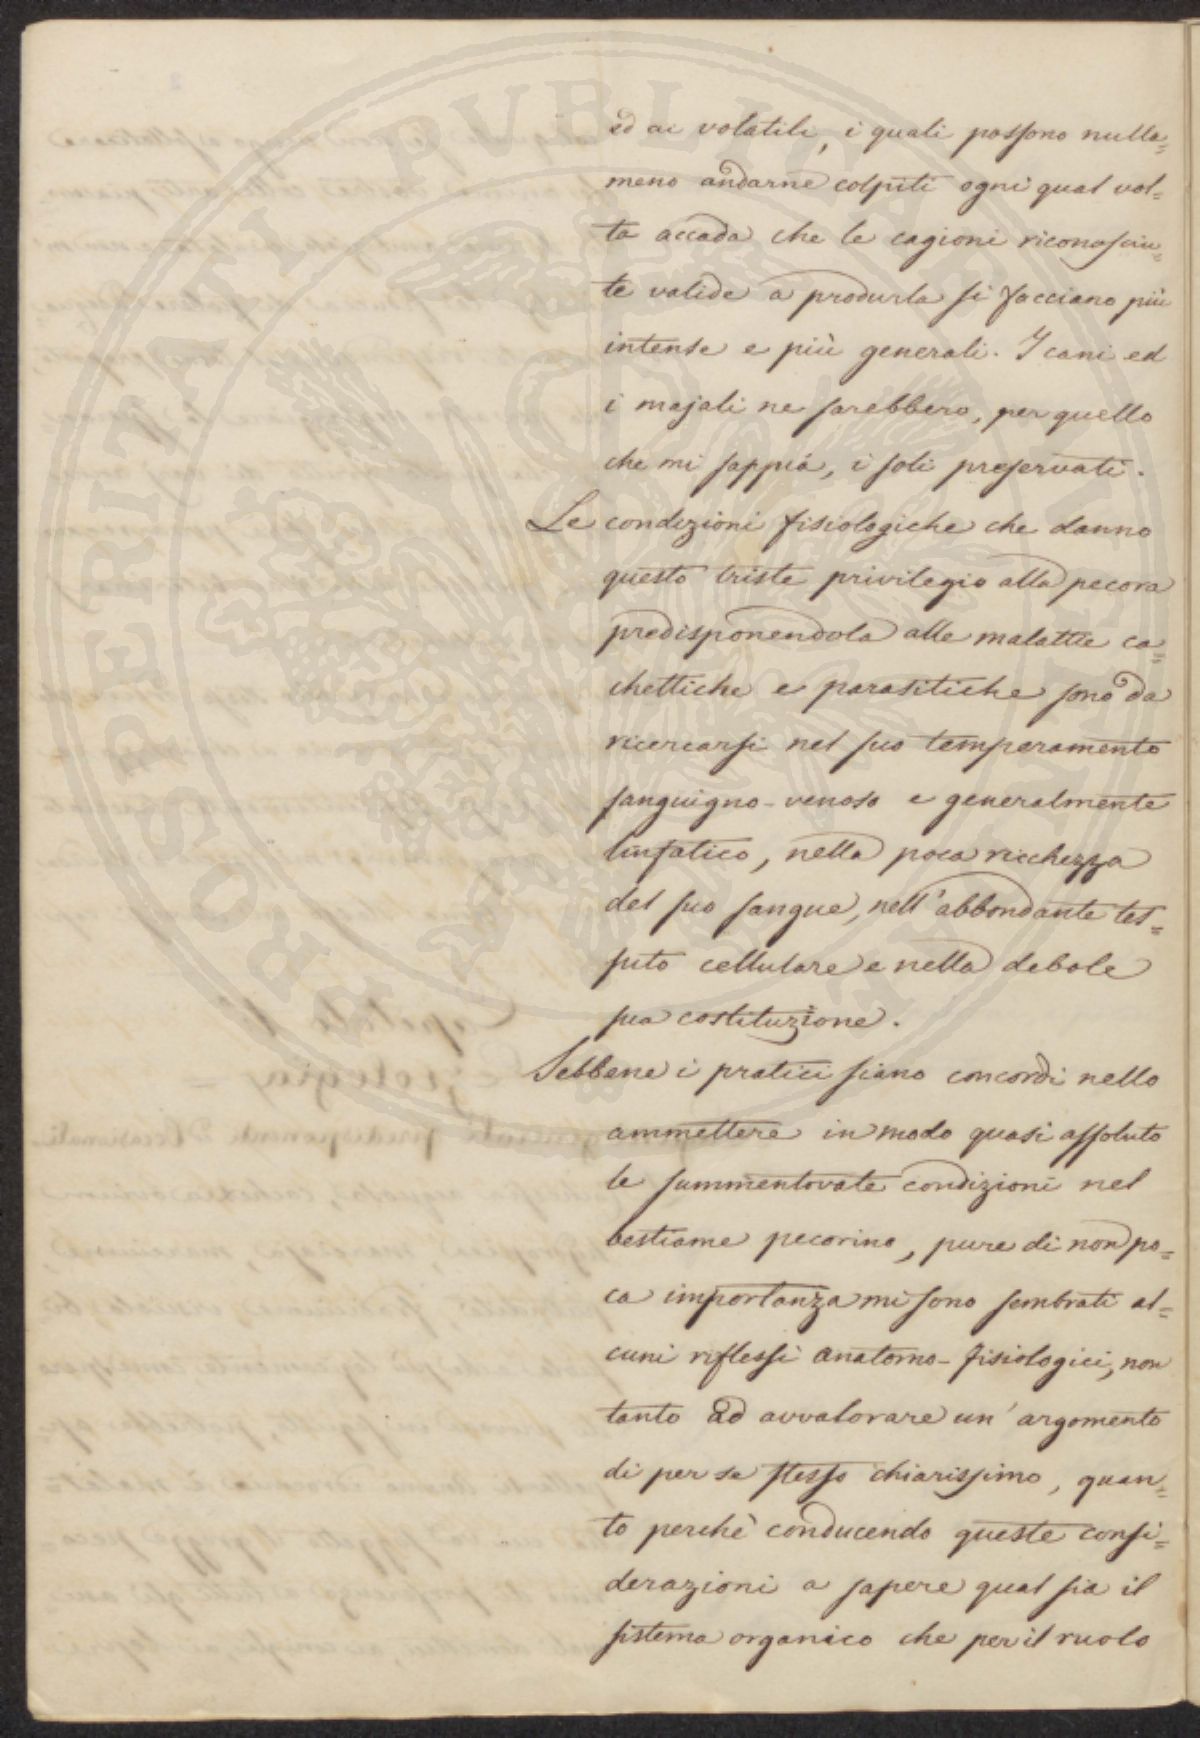 ed ai volatili, i quali possono nulla=
meno andarne colpiti ogni qual vol=
ta accada che le cagioni riconosciu=
te valide a produrla si facciano più
intense e più generali. I cani ed
i majali ne sarebbero, per quello
che mi sappia, i soli preservati.
Le condizioni fisiologiche che danno
questo triste privilegio alla pecora
predisponendola alle malattie ca=
chettiche e parasitiche sono da
ricercarsi nel suo temperamento
sanguigno-venoso e generalmente
linfatico, nella poca ricchezza
del suo sangue, nell'abbondante tes=
suto cellulare e nella debole
sua costituzione.
Sebbene i pratici siano concordi nello
ammettere in modo quasi assoluto
le summentovate condizioni nel
bestiame pecorino, pure di non po=
ca importanza mi sono sembrati al=
cuni riflessi anatomo-fisiologici, non
tanto ad avvalorare un'argomento
di per se stesso chiarissimo, quan=
to perchè conducendo queste consi=
derazioni a sapere qual sia il
sistema organico che per il ruolo
PROSPERITATI PUBLICAE AUGENDAE